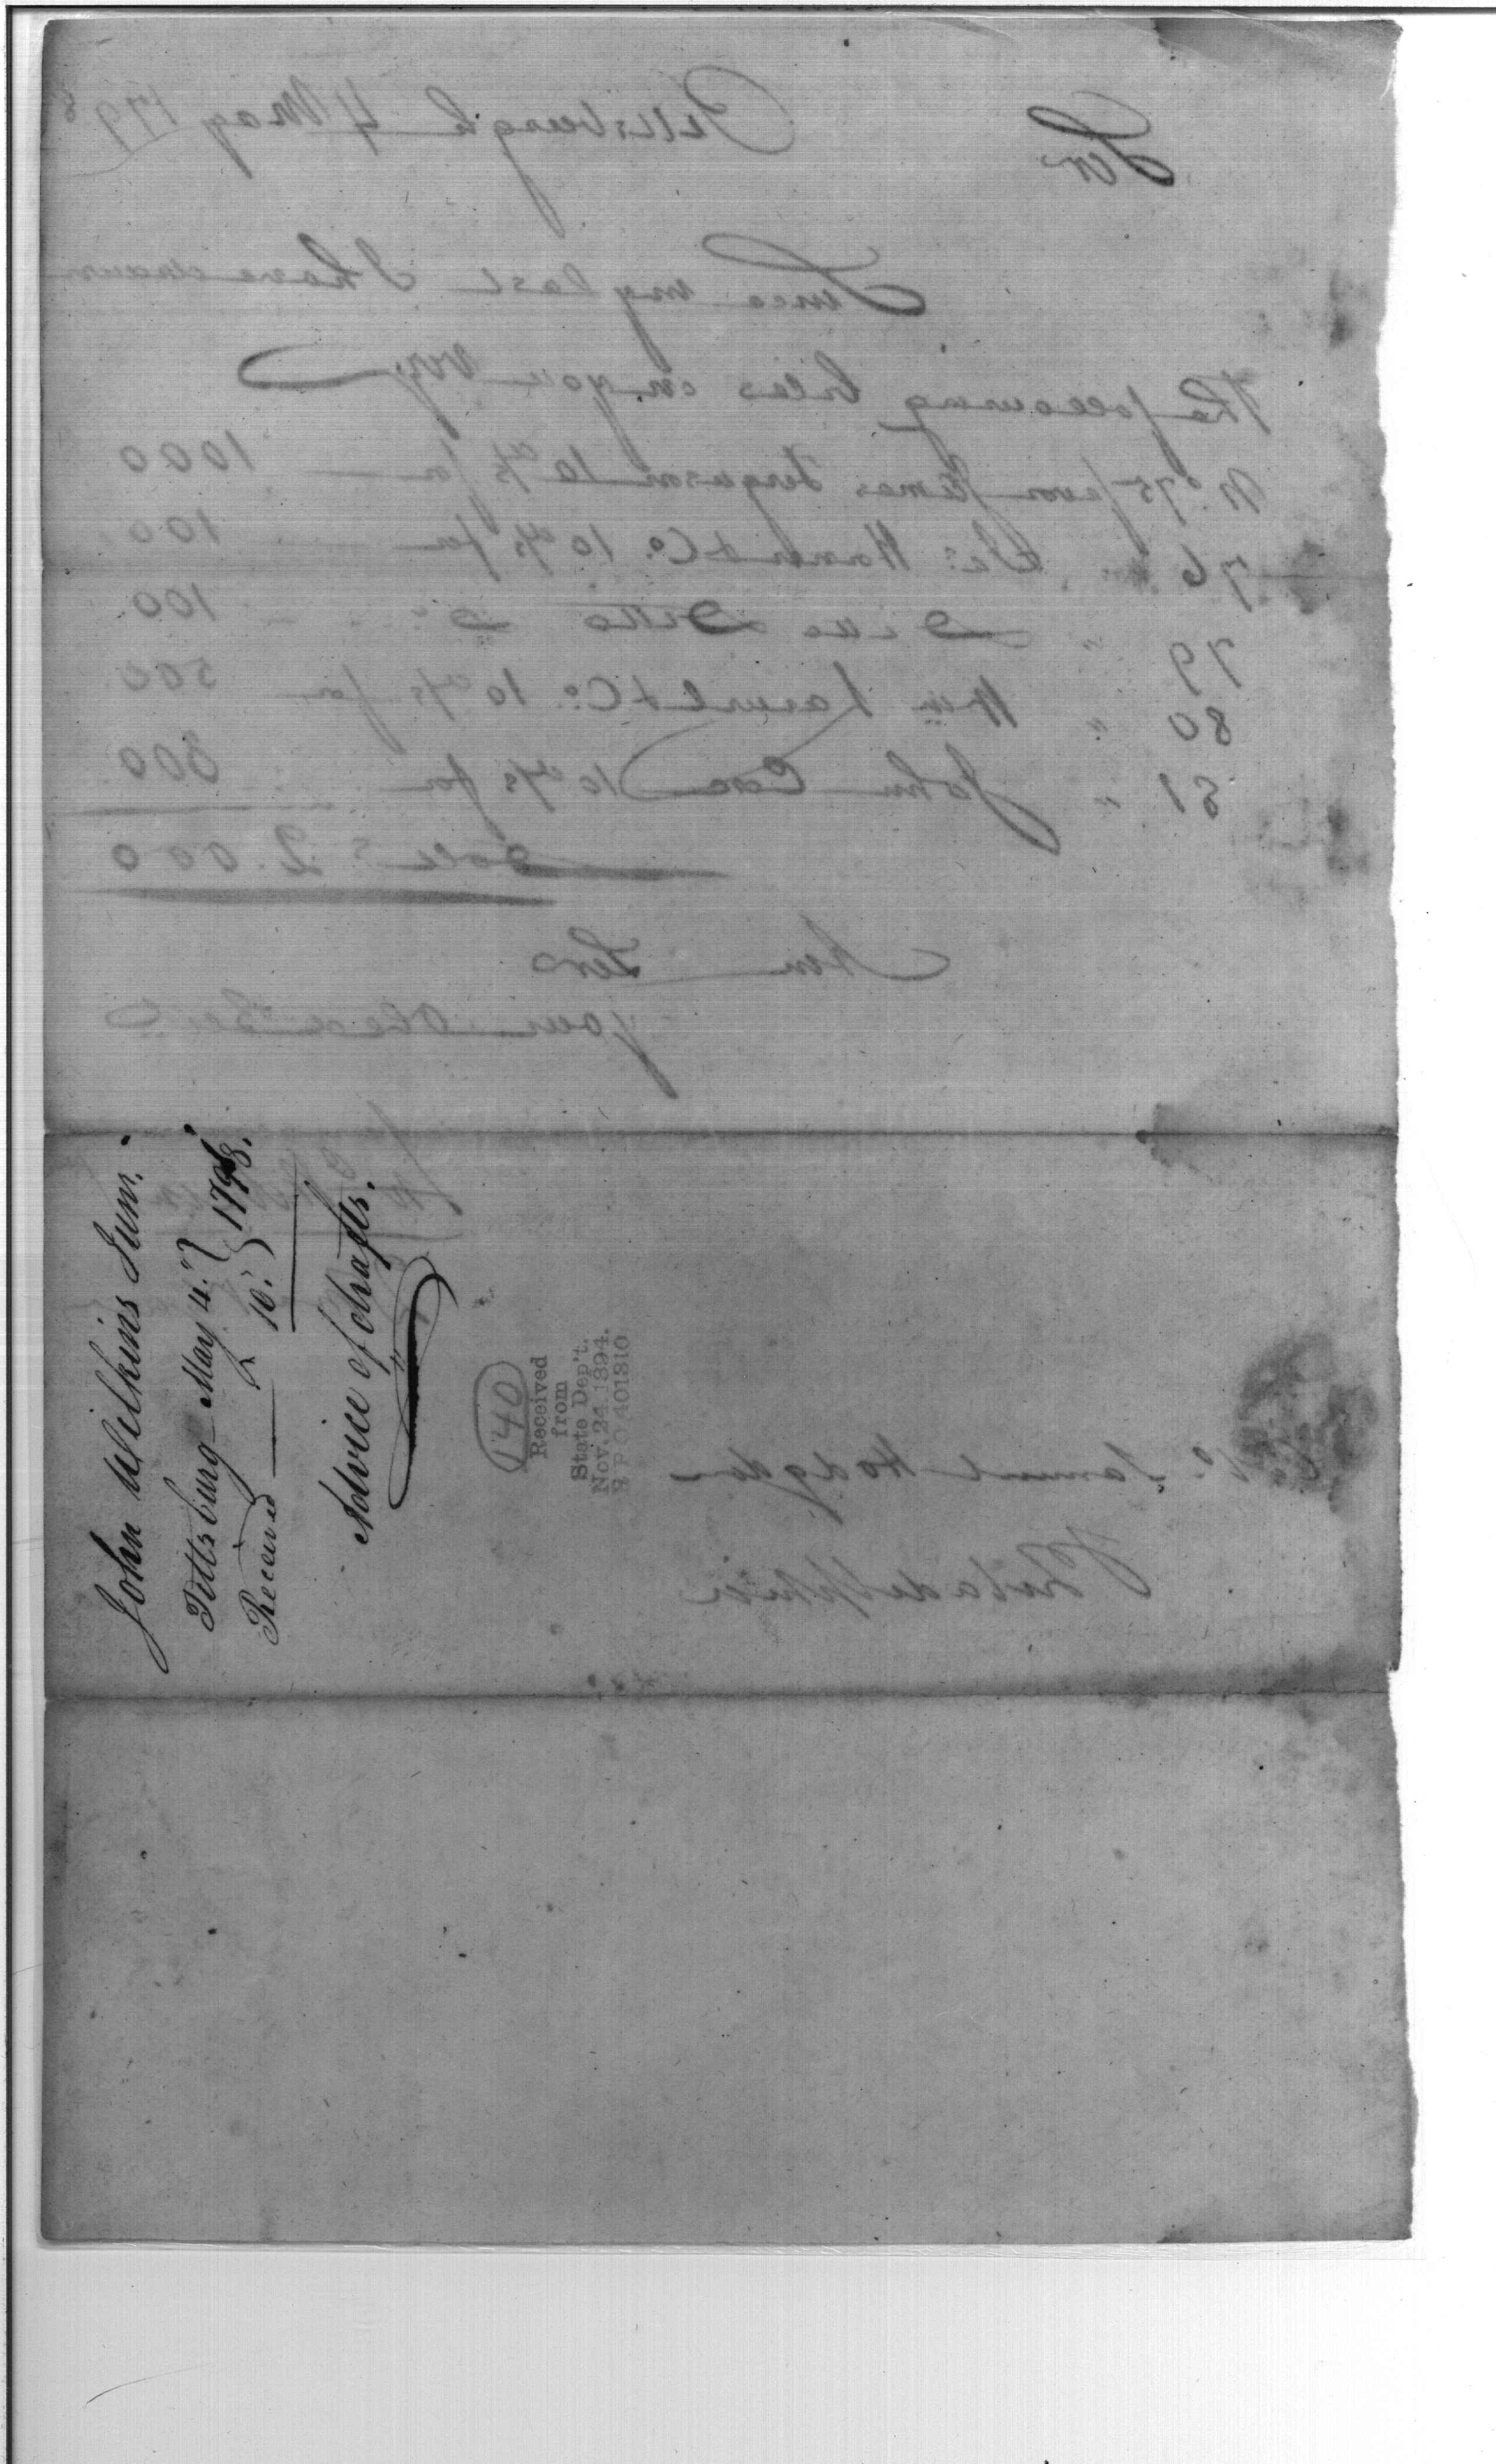 John Wilkins Junr.
Pittsburg May 4.
Received 10. } 1798.
Advice of drafts.
140
Received
from
State Dep't.
Nov. 24 1894.
R. P. O 401310
Sir
Pittsburgh 4 May 179
Since my last I have drawn
The following bills on you viz,
No. 75 favor James Ferguson 10 d/s for 1000
76 " & Co. 10 d/s for 100
79 " Ditto Do 100
80 " Wm & Co. 10 d/s for 500
81 " John 10 d/s for 300
Dolls 2.000
Am Sir
your Obed
Samuel Hodgdon
Philadelphia